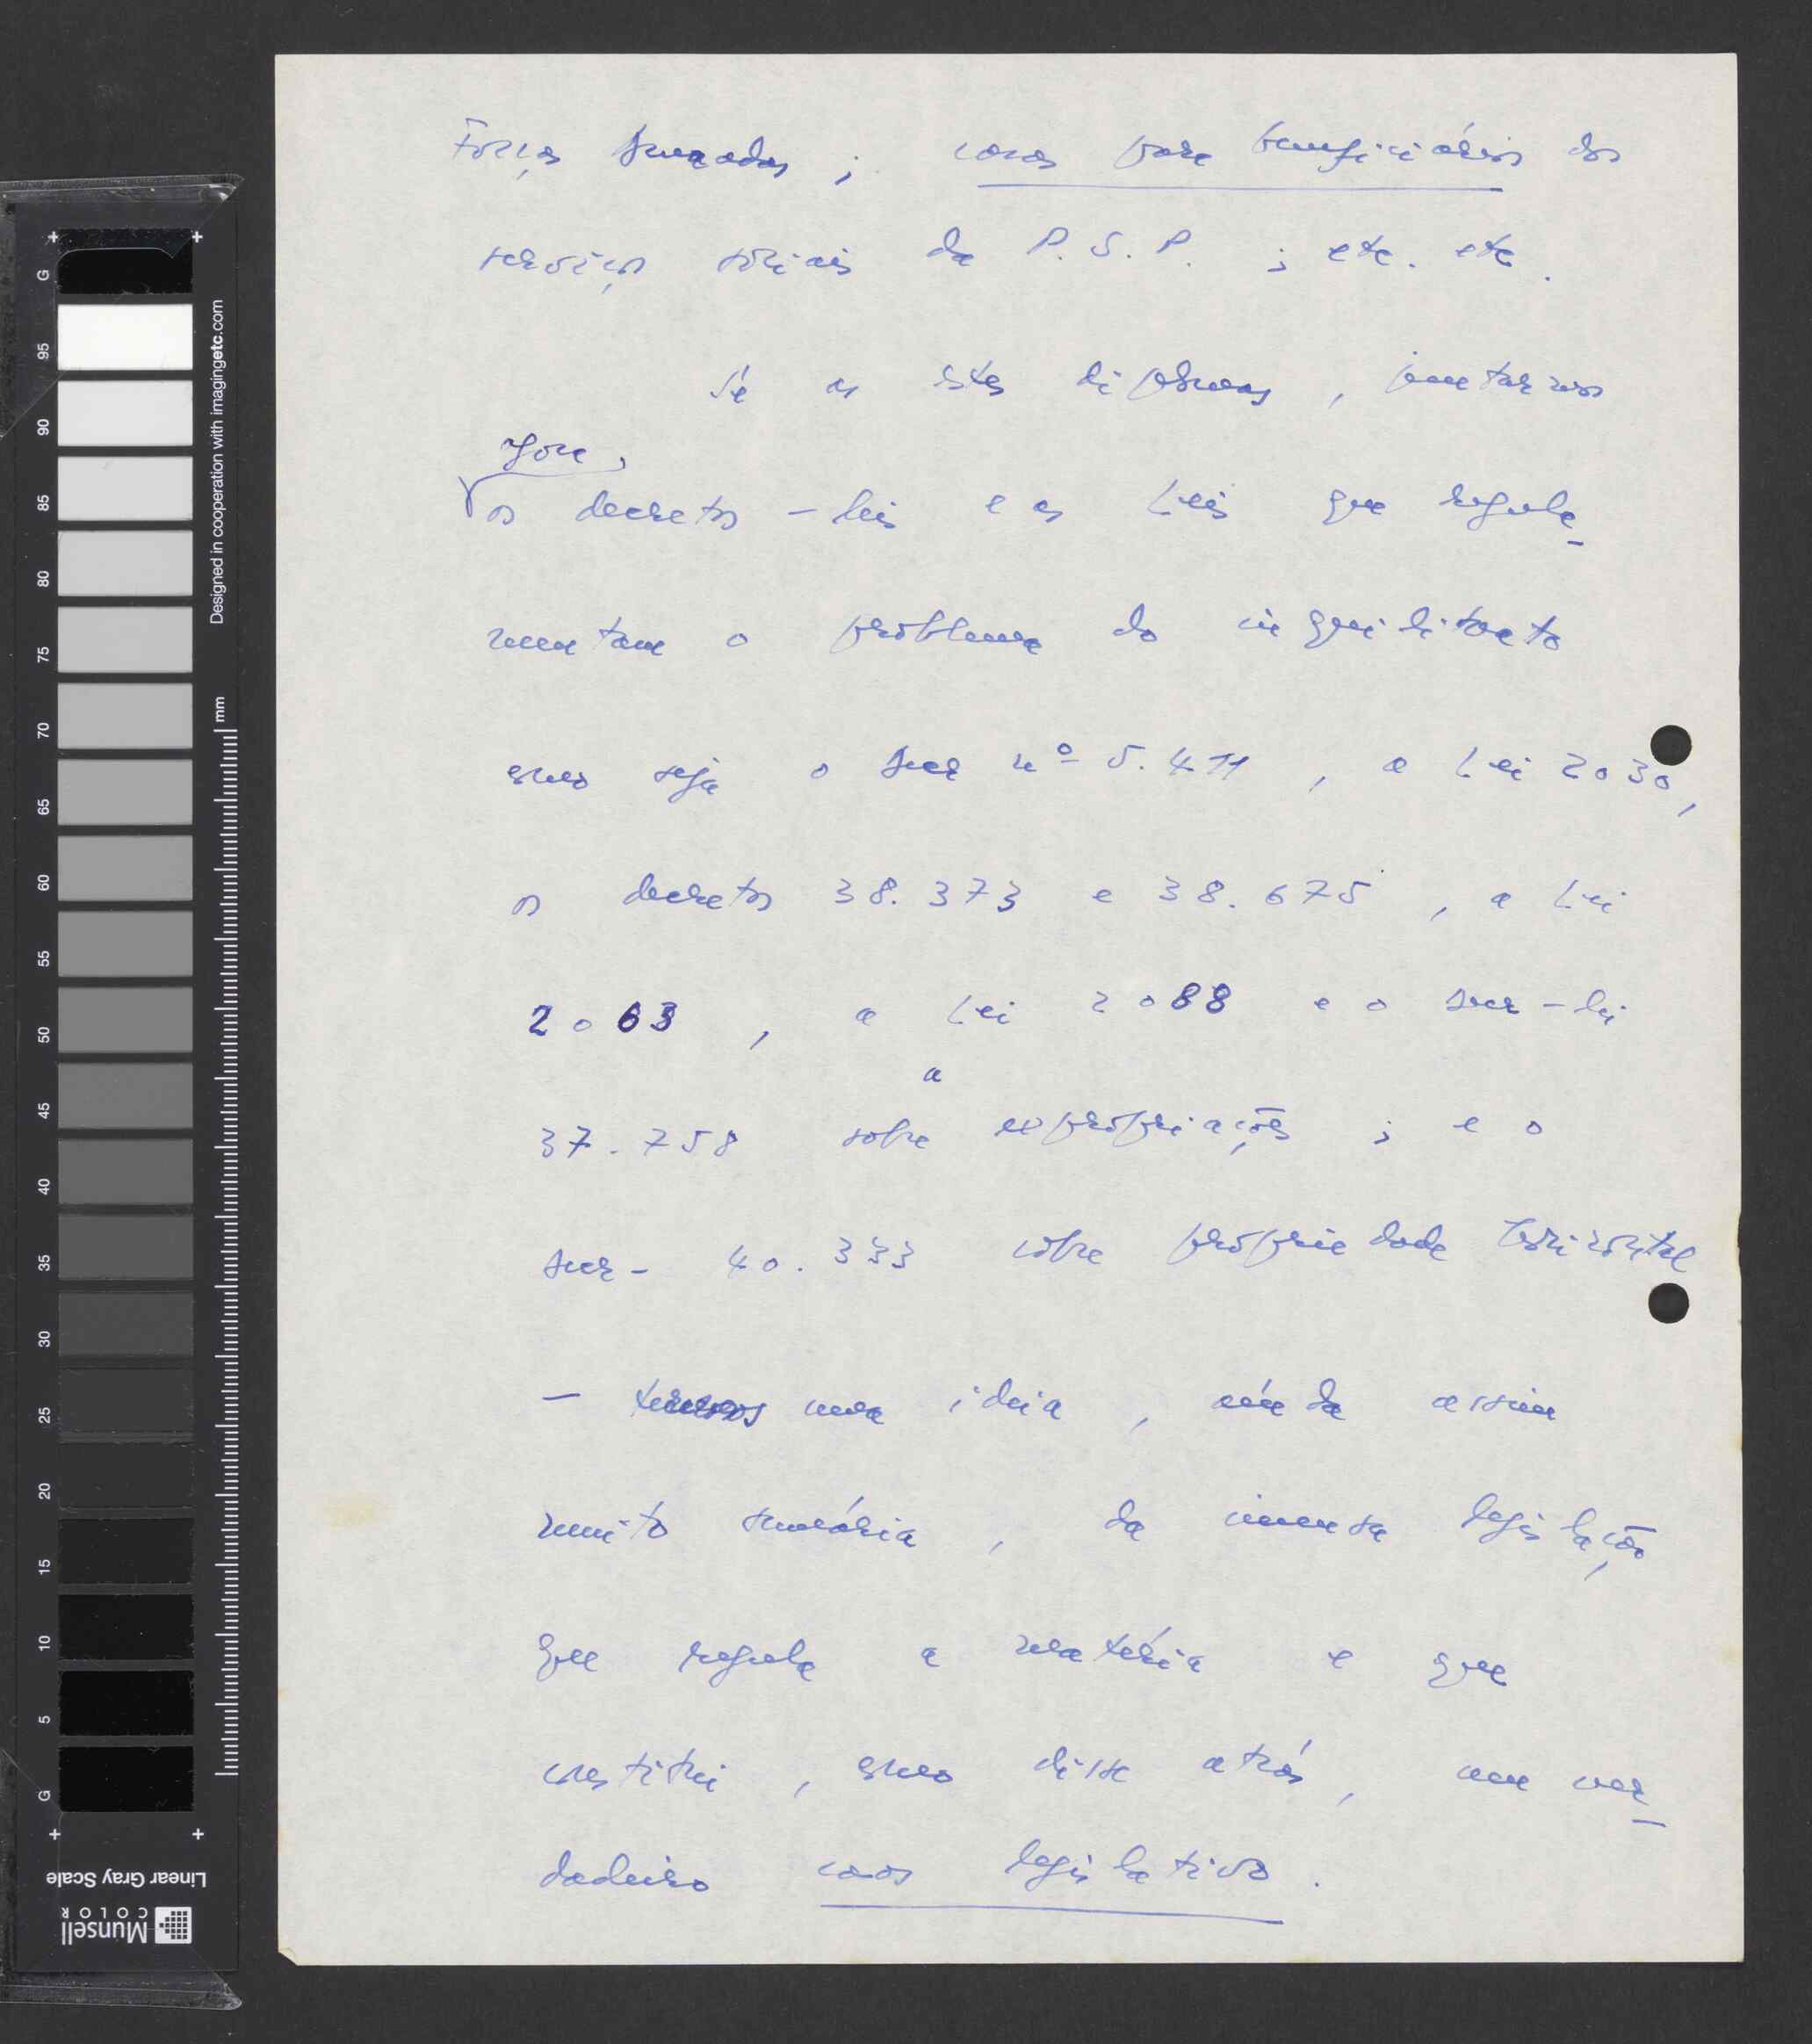 Forças Armadas ; casas para beneficiários dos
serviços sociais da P.S.P. ; etc. etc.
Se a estes diplomas, juntarmos
agora,
os decretos-leis e as Leis que regula-
mentam o problema do inquilinato
como seja o Decr nº 5.411, a Lei 2030,
os decretos 38.373 e 38.675, a Lei
2063, a Lei 2088 e o Decr-lei
a
37.758 sobre expropriações ; e o
Decr- 40.333 sobre propriedade horizontal
- teremos uma ideia, ainda assim
muito sumária, da imensa legislação
que regula a matéria e que
constitui, como disse atrás, um ver-
dadeiro caos legislativo.
G 95 90 85 80 75 70 65 60 55 50 45 40 35 30 25 20 15 10 5 G
Designed in cooperation with imagingetc.com
mm
Linear Gray Scale
Munsell
COLOR